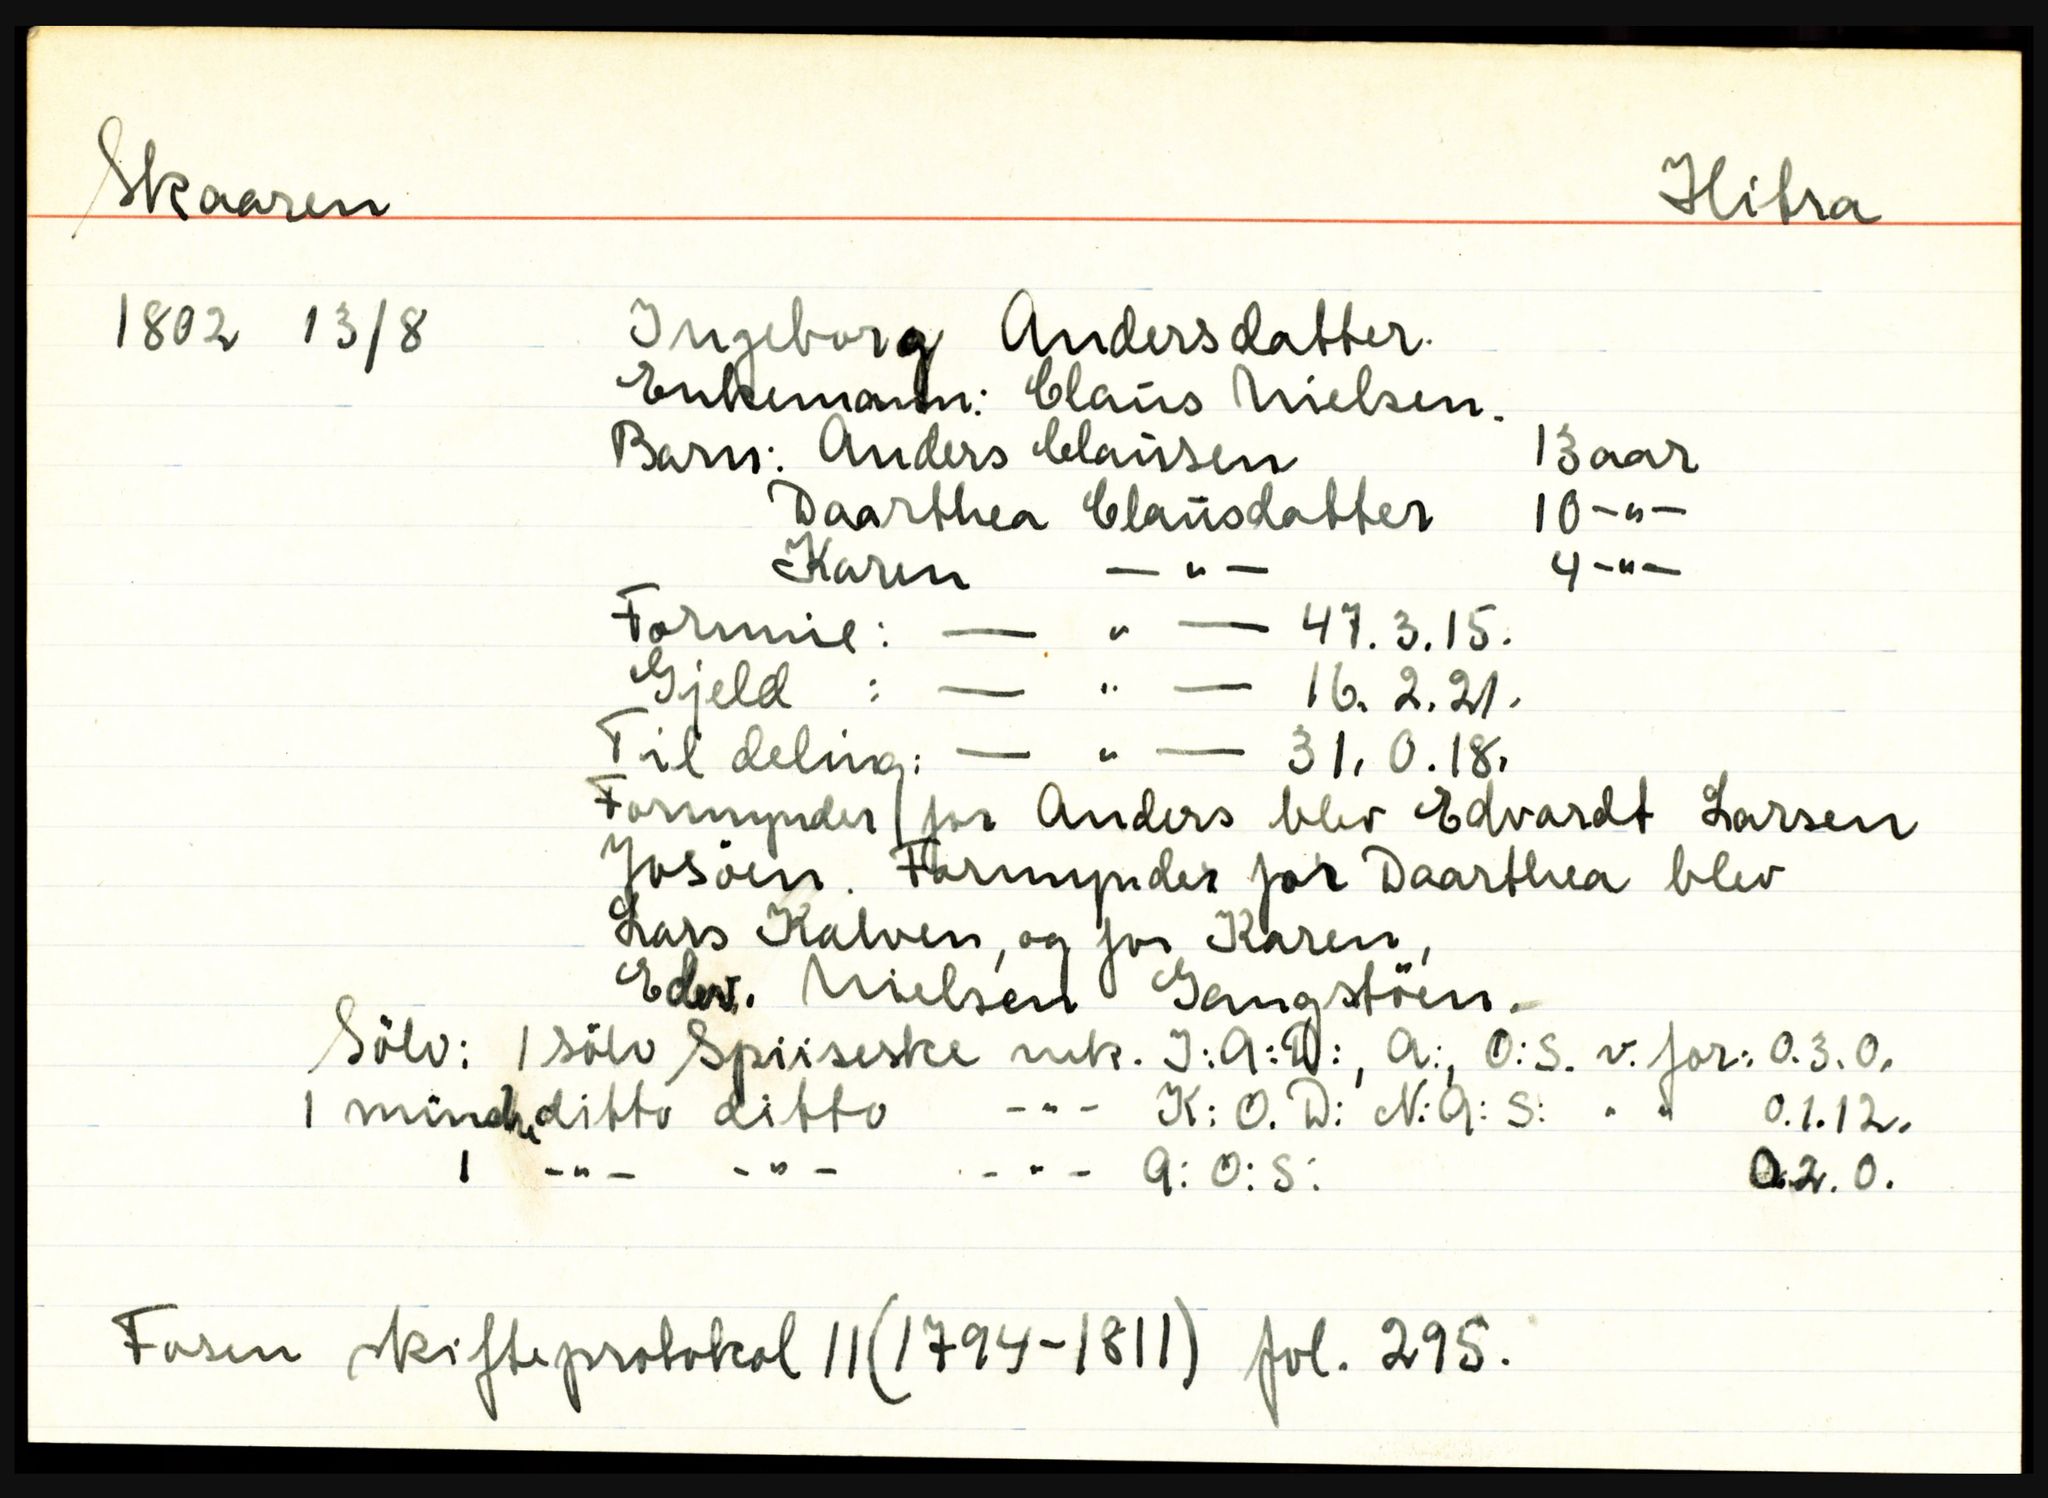 Skaaren Hitra
1802 13/8 Ingeborg Andersdatter.
Enkemann: Claus Nielsen.
Barn: Anders Clausen 13 aar
Daarthea Clausdatter 10 -"-
Karen -"- 4 -"-
Formue: — " — 47.3.15.
Gjeld : — " — 16.2.21.
Til deling: — " — 31.0.18.
Formynder for Anders blev Edvardt Larsen
Josöen. Formynder for Daarthea blev
Lars Kalven, og for Karen,
Edv. Nielsen Gangstöen.
Sölv: 1 sölv Spiiseske mk. I:A:D:, A:, O:S. v. for: 0.3.0.
1 mindre ditto ditto -"- K:O.D: N:A:S: " " 0.1.12.
1 -"- -"- -"- A:O:S: 0.2.0.
Fosen skifteprotokol 11 (1794-1811) fol. 295.